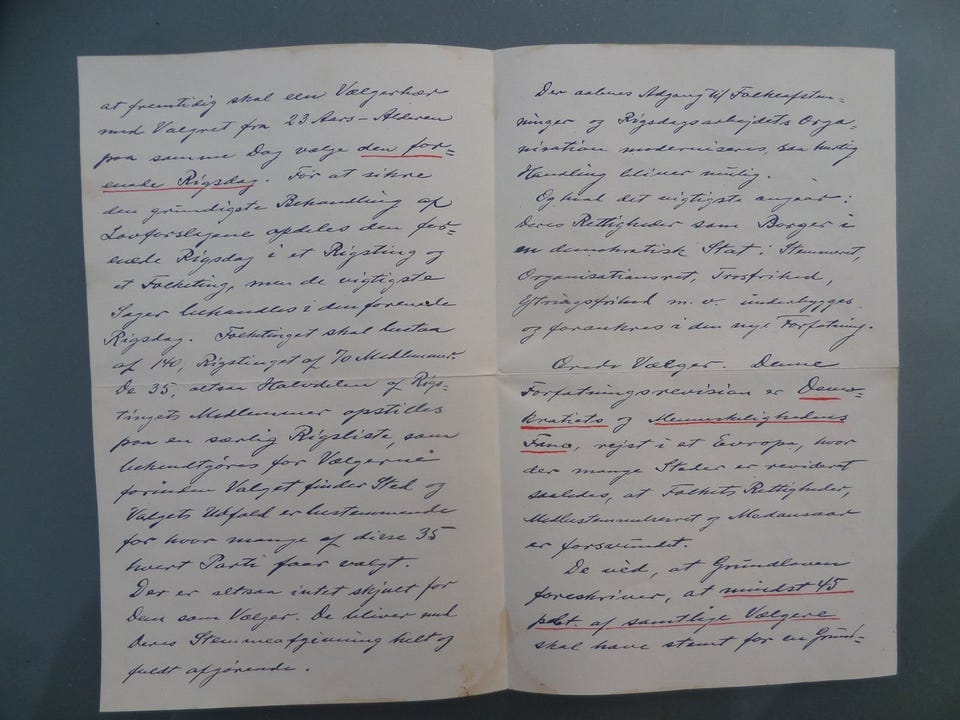 at fremtidig skal een Vælgerhær
med Valgret fra 23 Aars-Alderen
paa samme Dag vælge den for=
enede Rigsdag. For at sikre
den grundigste Behandling af
Lovforslagene opdeles den for=
enede Rigsdag i et Rigsting og
et Folketing, men de vigtigste
Sager behandles i den forenede
Rigsdag. Folketinget skal bestaa
af 140, Rigstinget af 70 Medlemmer.
De 35, altsaa Halvdelen af Rigs=
tingets Medlemmer opstilles
paa en særlig Rigsliste, som
bekendtgøres for Vælgerne
forinden Valget finder Sted og
Valgets Udfald er bestemmende
for hvor mange af disse 35
hvert Parti faar valgt.
Der er altsaa intet skjult for
Dem som Vælger. De bliver med
Deres Stemmeafgivning helt og
fuldt afgørende.
Der aabnes Adgang til Folkeafstem=
ninger og Rigsdagsarbejdets Orga=
nisation moderniseres, saa hurtig
Handling bliver mulig.
Og hvad det vigtigste angaar:
Deres Rettigheder som Borger i
en demokratisk Stat: Stemmeret,
Organisationsret, Trosfrihed,
Ytringsfrihed m. v. underbygges
og forankres i den nye Forfatning.
Ærede Vælger. Denne
Forfatningsrevision er Demo=
kratiets og Menneskelighedens
Fane, rejst i et Evropa, hvor
der mange Steder er revideret
saaledes, at Folkets Rettigheder,
Medbestemmelsesret og Medansvar
er forsvundet.
De véd, at Grundloven
foreskriver, at mindst 45
pCt. af samtlige Vælgere
skal have stemt for en Grund=